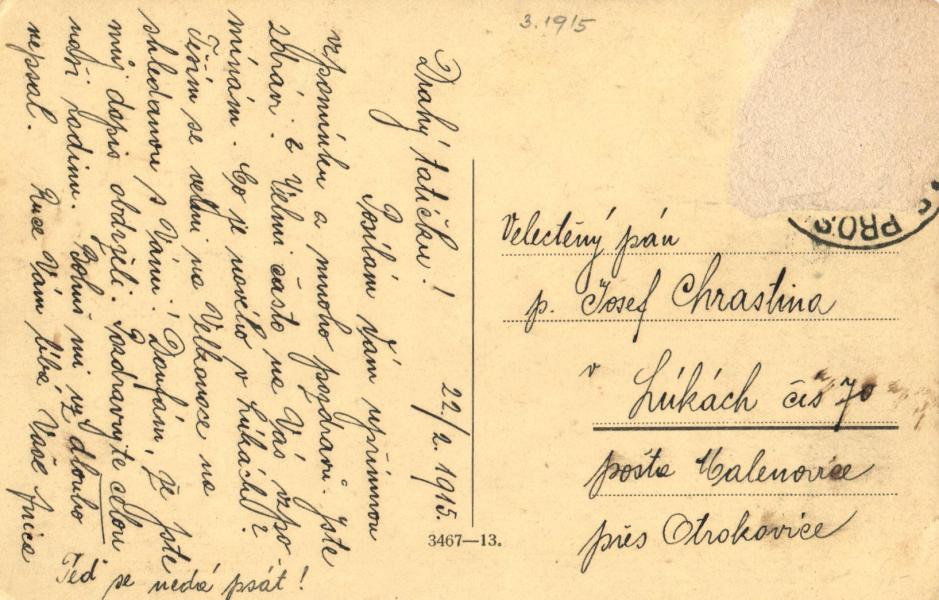 3.1915
Drahý tatíčku! 22/2. 1915.
Posílám Vám upřímnou
vzpomínku a mnoho pozdravů. Jste
zdrávi? Velmi často na Vás vzpo-
mínám. Co je nového v Lúkách?
Těším se velmi na Velkonoce na
shledanou s Vámi! Doufám, že jste
můj dopis obdrželi. Pozdravujte celou
naši rodinu. mi už dlouho
nepsal. Ruce Vám líbá Vaše
Teď se nedá psát!
Velectěný pán
p. Josef Chrastina
v
Lúkách čís 70
pošta Malenovice
přes Otrokovice
3467—13.
PROS